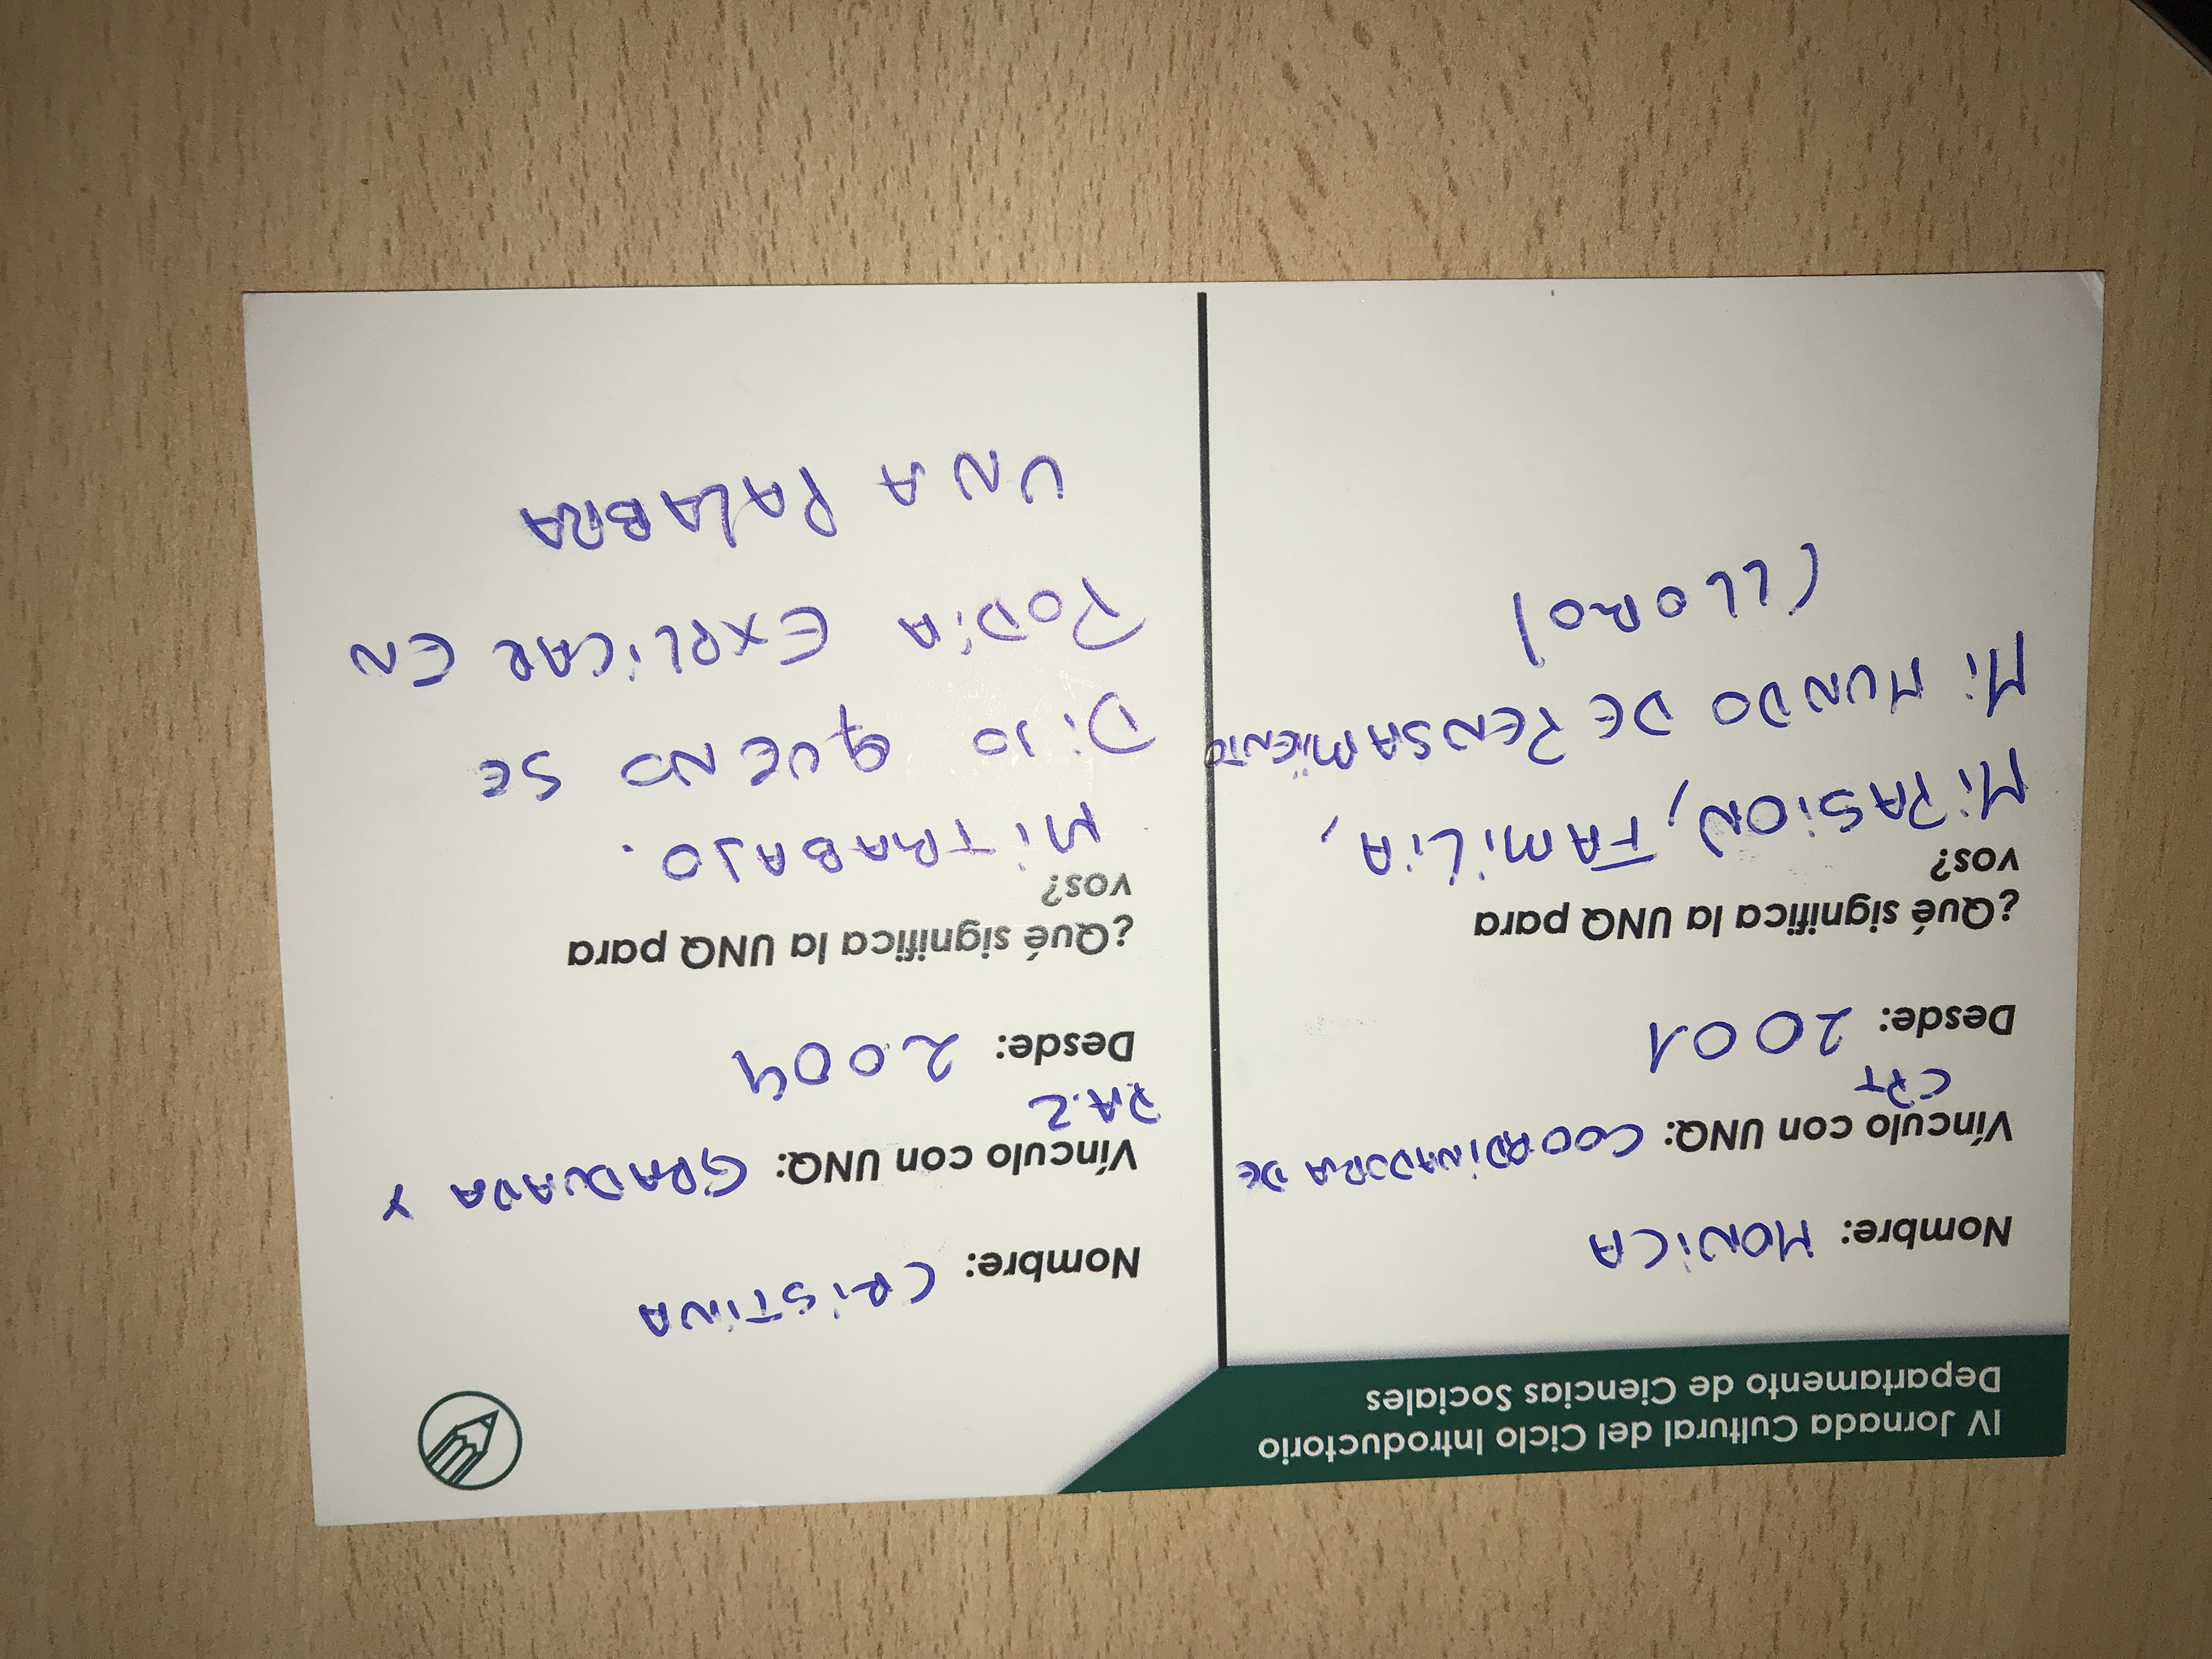 IV Jornada Cultural del Ciclo Introductorio
Departamento de Ciencias Sociales
Nombre: MONICA
Vínculo con UNQ: COORDINADORA DE
CPT
Desde: 2001
¿Qué significa la UNQ para
vos?
Mi PASION, FAMILIA,
Mi MUNDO DE PENSAMIENTO
(LLORO)
Nombre: CRISTINA
Vínculo con UNQ: GRADUADA Y
P.A.Z
Desde: 2004
¿Qué significa la UNQ para
vos?
Mi TRABAJO.
DiJO QUE NO SE
PODiA EXPLiCAR EN
UNA PALABRA